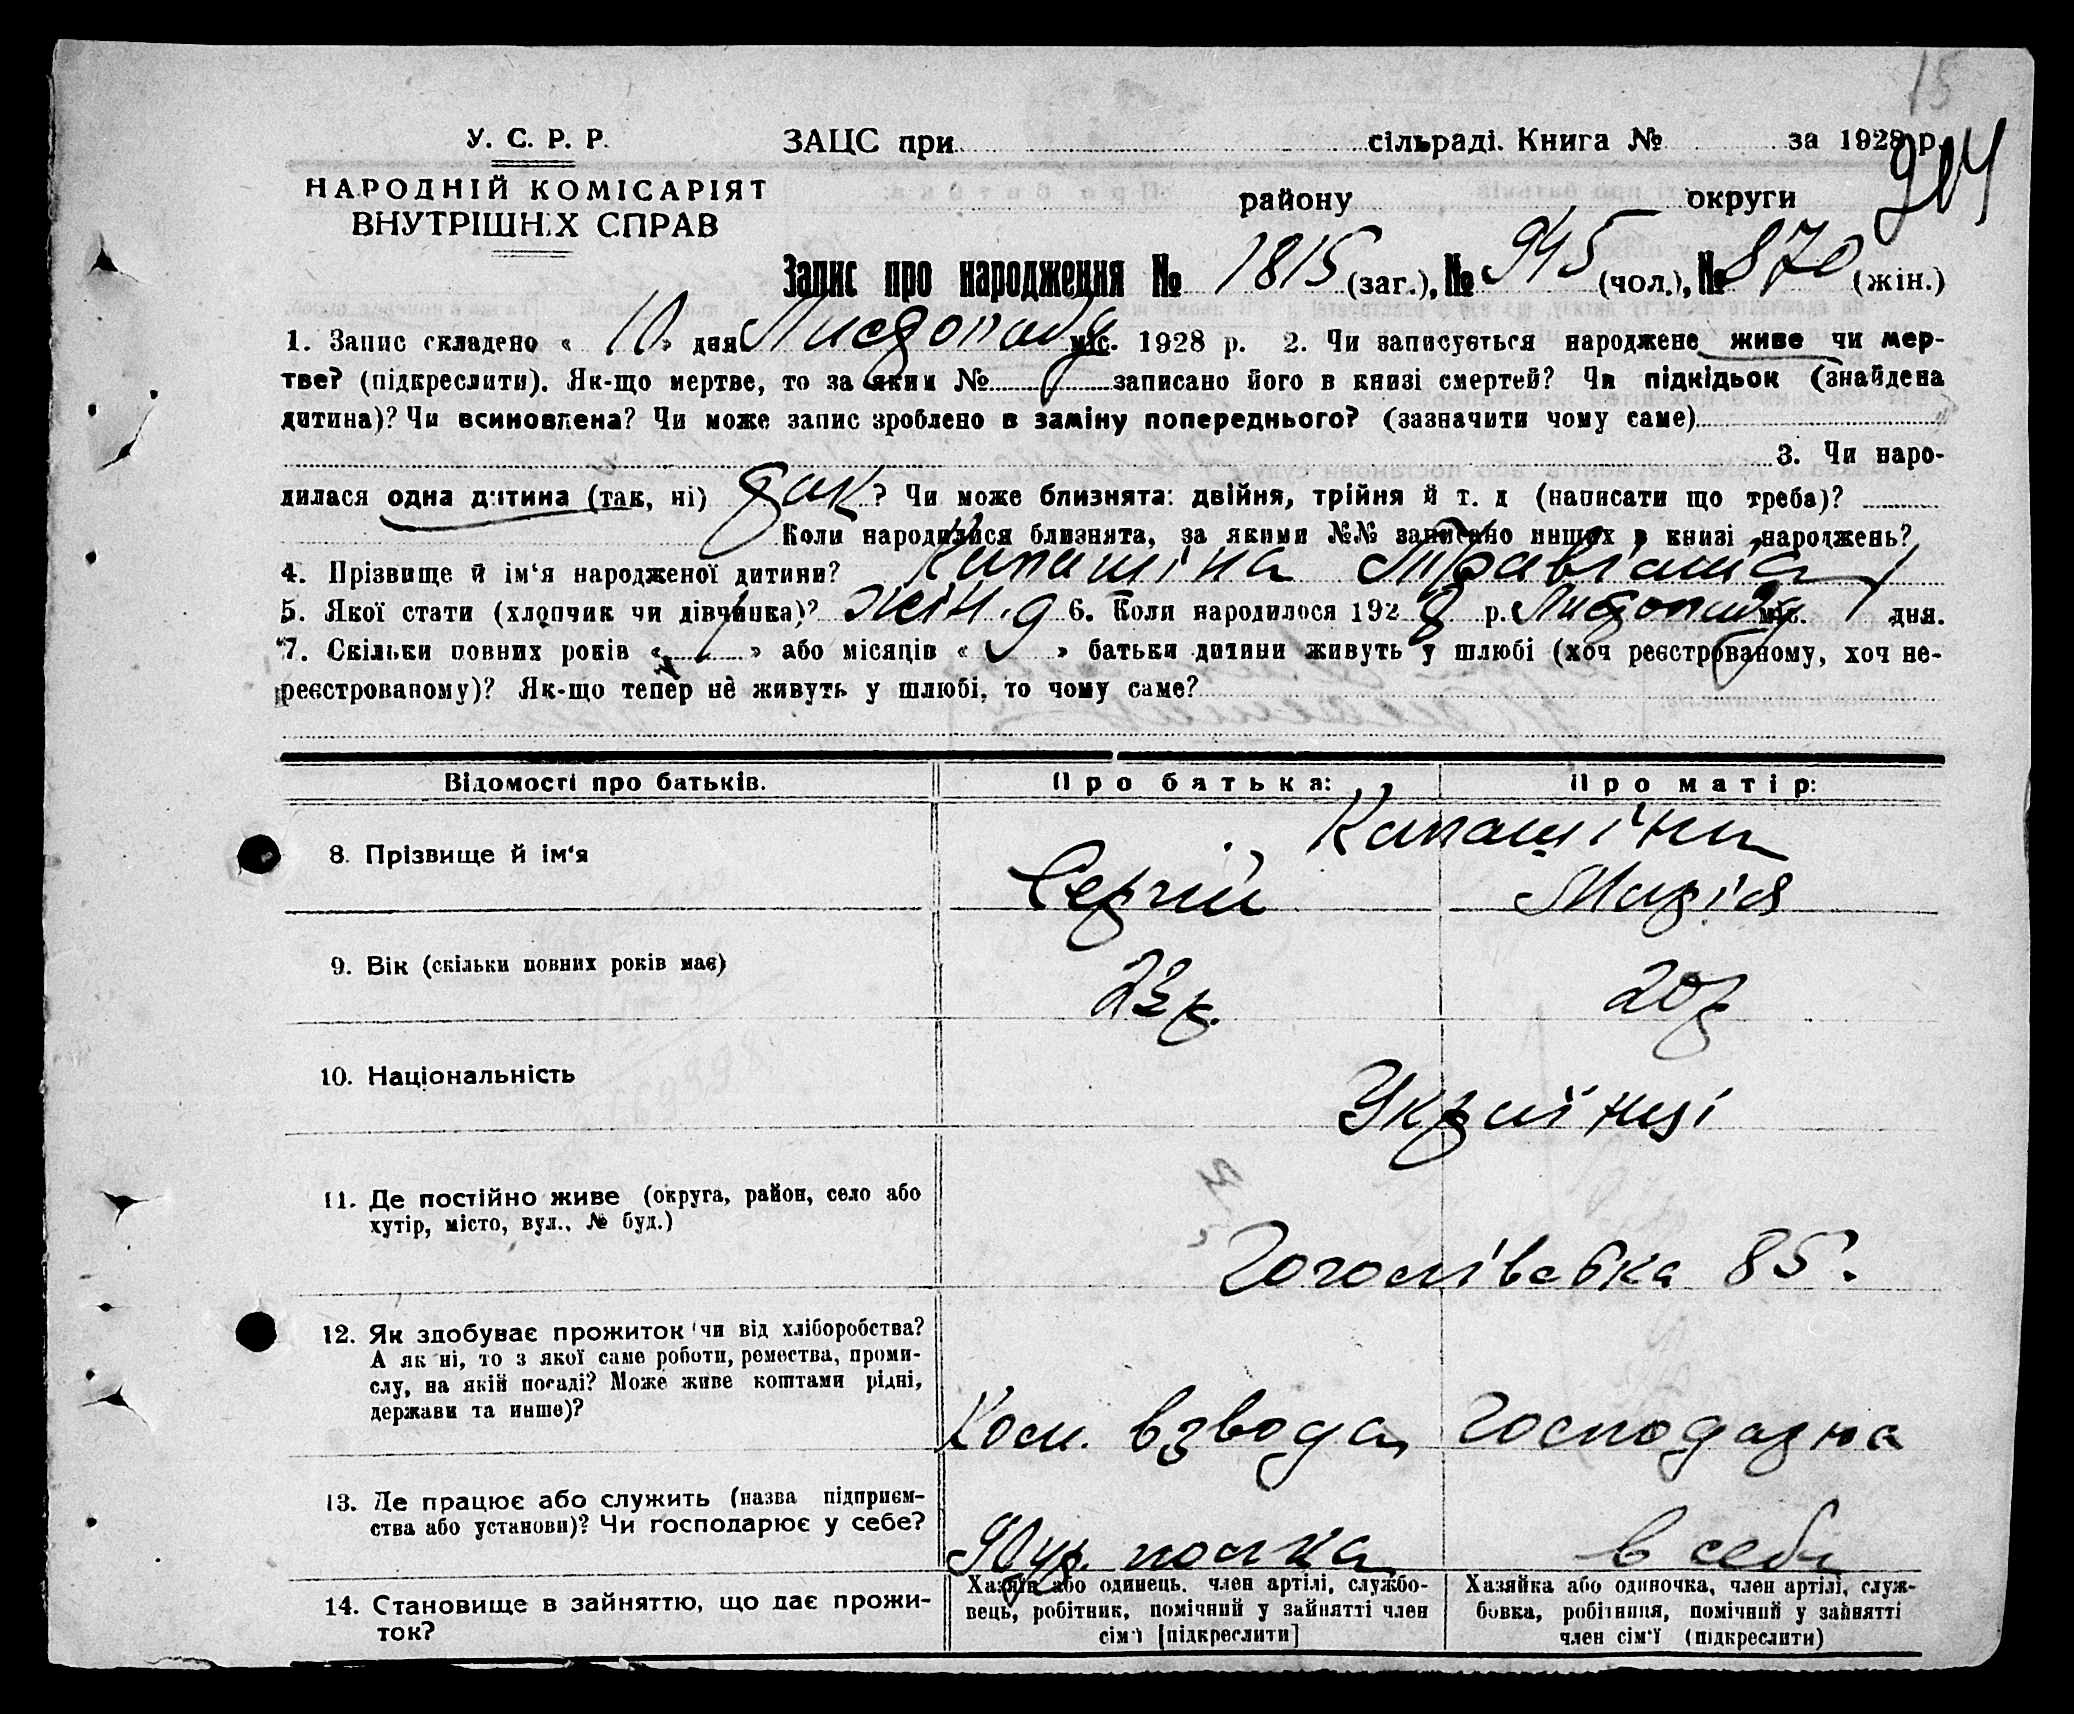 15
У. С. Р. Р.
ЗАЦС при сільраді. Книга № за 1928 р.
204
НАРОДНІЙ КОМІСАРІЯТ
ВНУТРІШНІХ СПРАВ
району округи
Запис про народження № 1815 (заг.), № 945 (чол.), № 870 (жін.)
1. Запис складено « 10 » дня Листопаду міс. 1928 р. 2. Чи записується народжене живе чи мер-
тве? (підкреслити). Як-що мертве, то за яким № записано його в книзі смертей? Чи підкідьок (знайдена
дитина)? Чи всиновлена? Чи може запис зроблено в заміну попереднього? (зазначити чому саме)
3. Чи наро-
дилася одна дитина (так, ні) так? Чи може близнята: двійня, трійня й т. д (написати що треба)?
Коли народилися близнята, за якими №№ записано инших в книзі народжень?
4. Прізвище й ім‘я народженої дитини? Капашіна
5. Якої стати (хлопчик чи дівчинка)? жін. 6. Коли народилося 1928 р. Листопаду міс. 1 дня.
7. Скільки повних років « 1 » або місяців « » батьки дитини живуть у шлюбі (хоч реєстрованому, хоч не-
реєстрованому)? Як-що тепер не живуть у шлюбі, то чому саме?
Відомості про батьків. Про батька: Про матір:
Капашіни
8. Прізвище й ім‘я Сергій Марія
9. Вік (скільки повних років має) 23 р. 20 р
10. Національність Українці
11. Де постійно живе (округа, район, село або
хутір, місто, вул., № буд.)
Гоголівська 85.
12. Як здобуває прожиток чи від хліборобства?
А як ні, то з якої саме роботи, ремества, проми-
слу, на якій посаді? Може живе коштами рідні,
держави та инше)?
Ком. взвода, господарка
13. Де працює або служить (назва підприєм-
ства або установи)? Чи господарює у себе?
полка в себе
14. Становище в зайняттю, що дає прожи-
ток?
Хазяїн або одинець, член артілі, службо-
вець, робітник, помічний у зайнятті член
сім‘ї [підкреслити]
Хазяйка або одиночка, член артілі, служ-
бовка, робітниця, помічний у зайнятті
член сім‘ї (підкреслити)